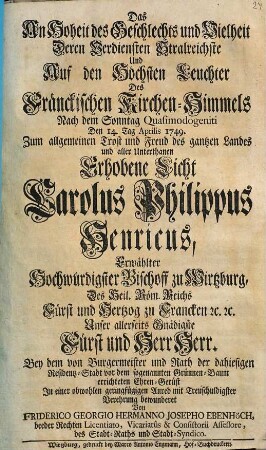 Das
An Hoheit des Geschlechts und Vielheit
Deren Verdiensten Stralreichste
Und
Auf den Höchsten Leuchter
Des
Fränckischen Kirchen-Himmels
Nach dem Sonntag Quasimodogeniti
Den 14. Tag Aprilis 1749.
Zum allgemeinen Trost und Freud des gantzen Landes
und aller Unterthanen
Erhobene Licht
Carolus Philippus
Henricus,
Erwählter
Hochwürdigster Bischoff zu Wirtzburg,
Des Heil. Röm. Reichs
Fürst und Hertzog zu Francken ꝛc. ꝛc.
Unser allerseits Gnädigste
Fürst und Herr Herr.
Bey dem von Burgermeister und Rath der dahiesigen
Residentz-Stadt vor dem sogenannten Grünnen-Baum
errichteten Ehren-Gerüst
In einer obwohlen geringfügigen Anred mit Treuschuldigster
Verehrung bewunderet
Von
FRIDERICO GEORGIO HERMANNO JOSEPHO EBENHÖCH,
beeder Rechten Licentiato, Vicariatûs & Consistorii Assessore,
des Stadt-Raths und Stadt-Syndico.
Wirtzburg, gedruckt bey Marco Antonio Engmann, Hof-Buchdruckern.